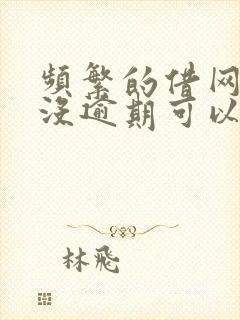 頻繁的借网
沒逾期可以
林飛